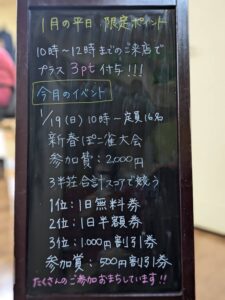 1月の平日 限定ポイント
10時～12時までのご来店で
プラス 3pt 付与!!!
今月のイベント
1/19(日)10時～定員16名
新春ぽこ雀大会
参加費:2,000円
3半荘合計スコアで競う
1位:1日無料券
2位:1日半額券
3位:1,000円割引券
参加賞:500円割引券
たくさんのご参加おまちしています!!